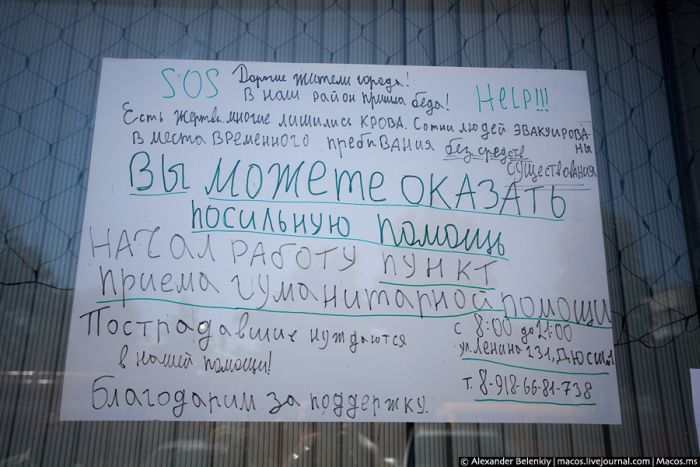 SOS Дорогие жители города! Help!!!
В наш район пришла беда!
Есть жертвы, многие лишились крова. Сотни людей эвакуированы
в места временного пребывания без средств
существования
Вы можете оказать
посильную помощь
Начал работу пункт
приема гуманитарной помощи
Пострадавшие нуждаются
в нашей помощи!
Благодарим за поддержку.
с 8:00 до 21:00
ул Ленина 131, ДЮСШ 1
т. 8-918-66-81-738
© Alexander Belenkiy | macos.livejournal.com | Macos.ms